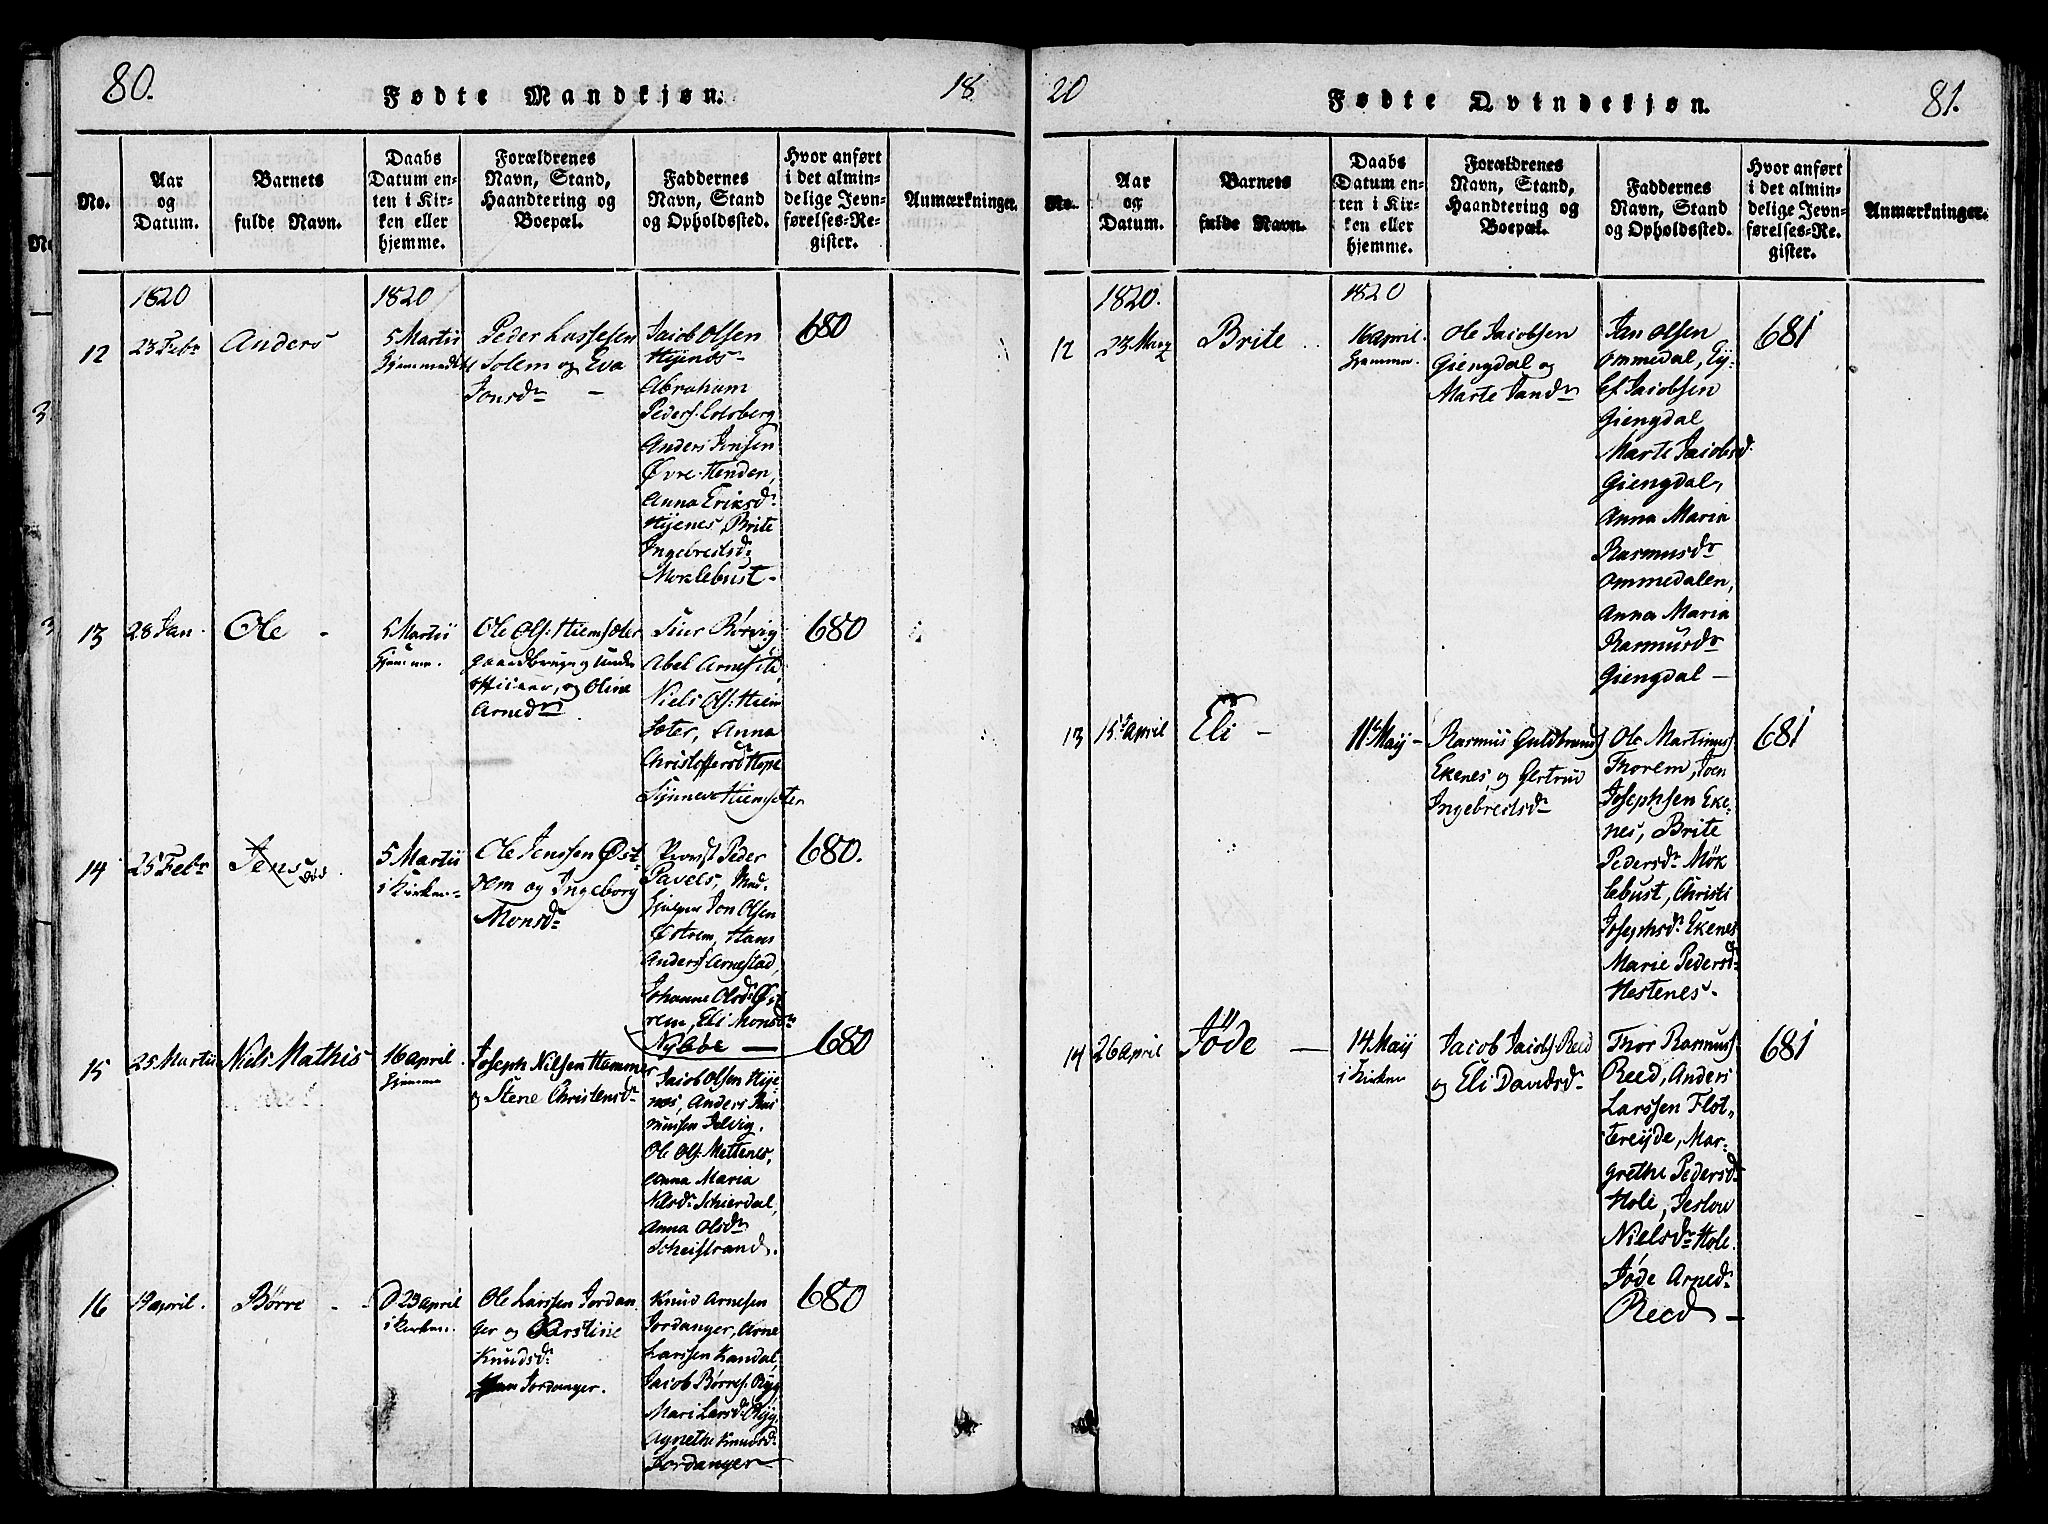 80.
Fødte Mandkjøn.
18
No.
Aar
og
Datum.
Barnets
fulde Navn.
Daabs
Datum en-
ten i Kir-
ken eller
hjemme.
Forældrenes
Navn, Stand,
Haandtering og
Boepæl.
Faddernes
Navn, Stand
og Opholdssted.
Hvor anført
i det almin-
delige Jevn-
førelses-Re-
gister.
Anmærkninger.
1820
1820
12
23 Febr
Anders
5 Martii
Hjemmedøbt
Peder Lassesen
Solem og Eva
Jonsdr
Jacob Olsen
Hyenes
Abraham
Peders. Loisberg
Anders Jensen
Øvre Henden,
Anna Eriksdr
Hyenes, Brite
Ingebretsdr
Moklebust
680
13
28 Jan.
Ole
5 Martii
Hjemme.
Ole Ols: Hiemsæter
gaardbruger og under
officeer, og Oline
Arnedr
Siur Børvig
Abel Arnes
Niels Ols: Hiem
sæter, Anna
Christoffersd Hope
Synneve Hiemsæter
680
14
25 Febr
Jens
død
5 Martii
i Kirken
Ole Jenssen Øst-
rem og Ingeborg
Monsdr
Provst Peder
Pavels, Med-
hjelper Jon Olsen
Østrem, Hans
Anders Arnestad,
Johanne Olsdr Øst
rem, Eli Monsdr
Nybøe
680.
15
25 Martii
Niels Mathis
16 April
Hjemme
Joseph Nilsen Hammer
og Stene Christensdr
Jacob Olsen Hye-
nes, Anders Ras
mussen Selvig,
Ole Ols: Mettenes,
Anna Maria
Nilsdr Schierdal,
Anna Olsdr
Scheistrand.
680
16
19 April.
Børre
D 23 April
i Kirken.
Ole Larssen Jordan
ger og Kirstine
Knudsdr
Jordanger.
Knud Arnesen
Jordanger, Arne
Larssen Kandal,
Jacob Børres. Ryg
Mari Larsdr Ryg
Agnethe Knudsdr
Jordanger
680
20
Fødte Qvindekjøn.
81.
No.
Aar
og
Datum.
Barnets
fulde Navn.
Daabs
Datum en-
ten i Kir-
ken eller
hjemme.
Forældrenes
Navn, Stand,
Haandtering og
Boepæl.
Faddernes
Navn, Stand
og Opholdssted.
Hvor anført
i det almin-
delige Jevn-
førelses-Re-
gister.
Anmærkninger.
1820.
1820
12
23 Martz
Brite
16 April.
Hjemme.
Ole Jacobsen
Giengdal og
Marte Jansdr
Jan Olsen
Ommedal, Ey-
lef Jacobsen
Giengdal
Marte Jacobsd.
Giengdal,
Anna Maria
Rasmusdr
Ommedalen,
Anna Maria
Rasmusdr
Giengdal
681
13
15 April
Eli
11 May
Rasmus Guldbrands
Ekenes og Gertrud
Ingebretsdr
Ole Martinus
Thorem, Joen
Josephsen Eke-
nes, Brite
Pedersdr Møk
lebust, Christi
Josephsdr Ekenes
Marie Pedersdr
Hestenes.
681
14
26 April
Jøde
14 May
i Kirken
Jacob Jacobs. Reed
og Eli Davidsdr
Thor Rasmus.
Reed, Anders
Larssen Flot-
tereyde, Mar-
grethe Pedersdr
Hole, Jeslow
Nielsdr Hole.
Jøde Arnedr
Reed
681